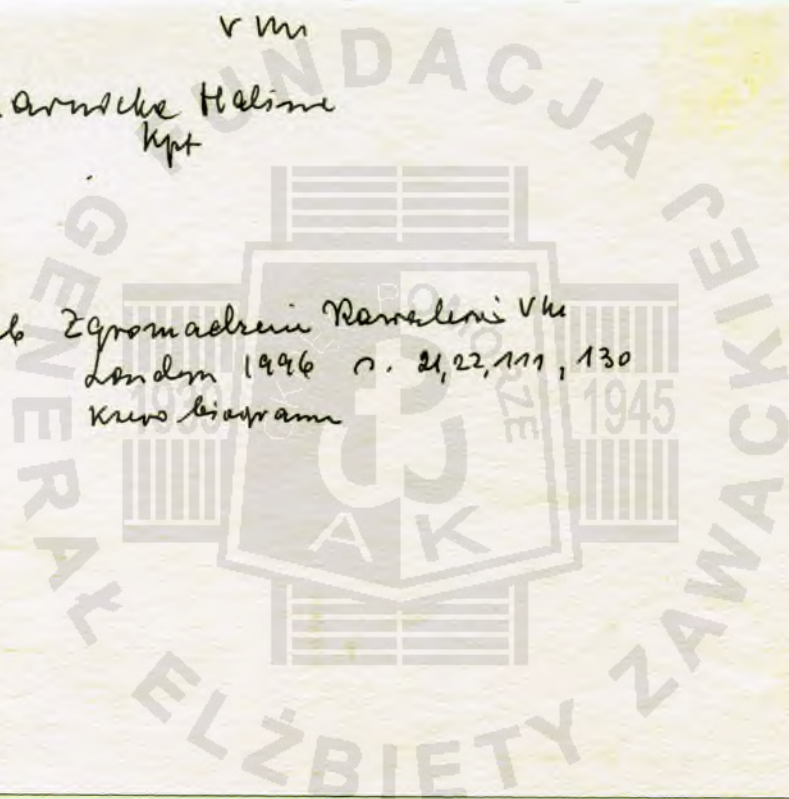 V M
Halina
Kpt
Zgromadzenie Kawalerów VM
London 1996 s. 21, 22, 111, 130
Krzyż biogram
FUNDACJA
GENERAŁ ELŻBIETY ZAWACKIEJ
POMORZE
1939
1945
AK